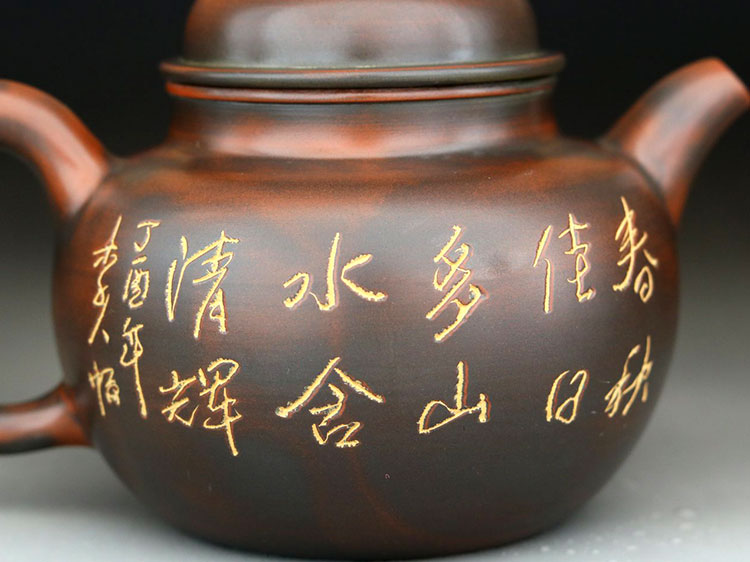 春秋
佳日
多山
水含
清輝
丁酉年